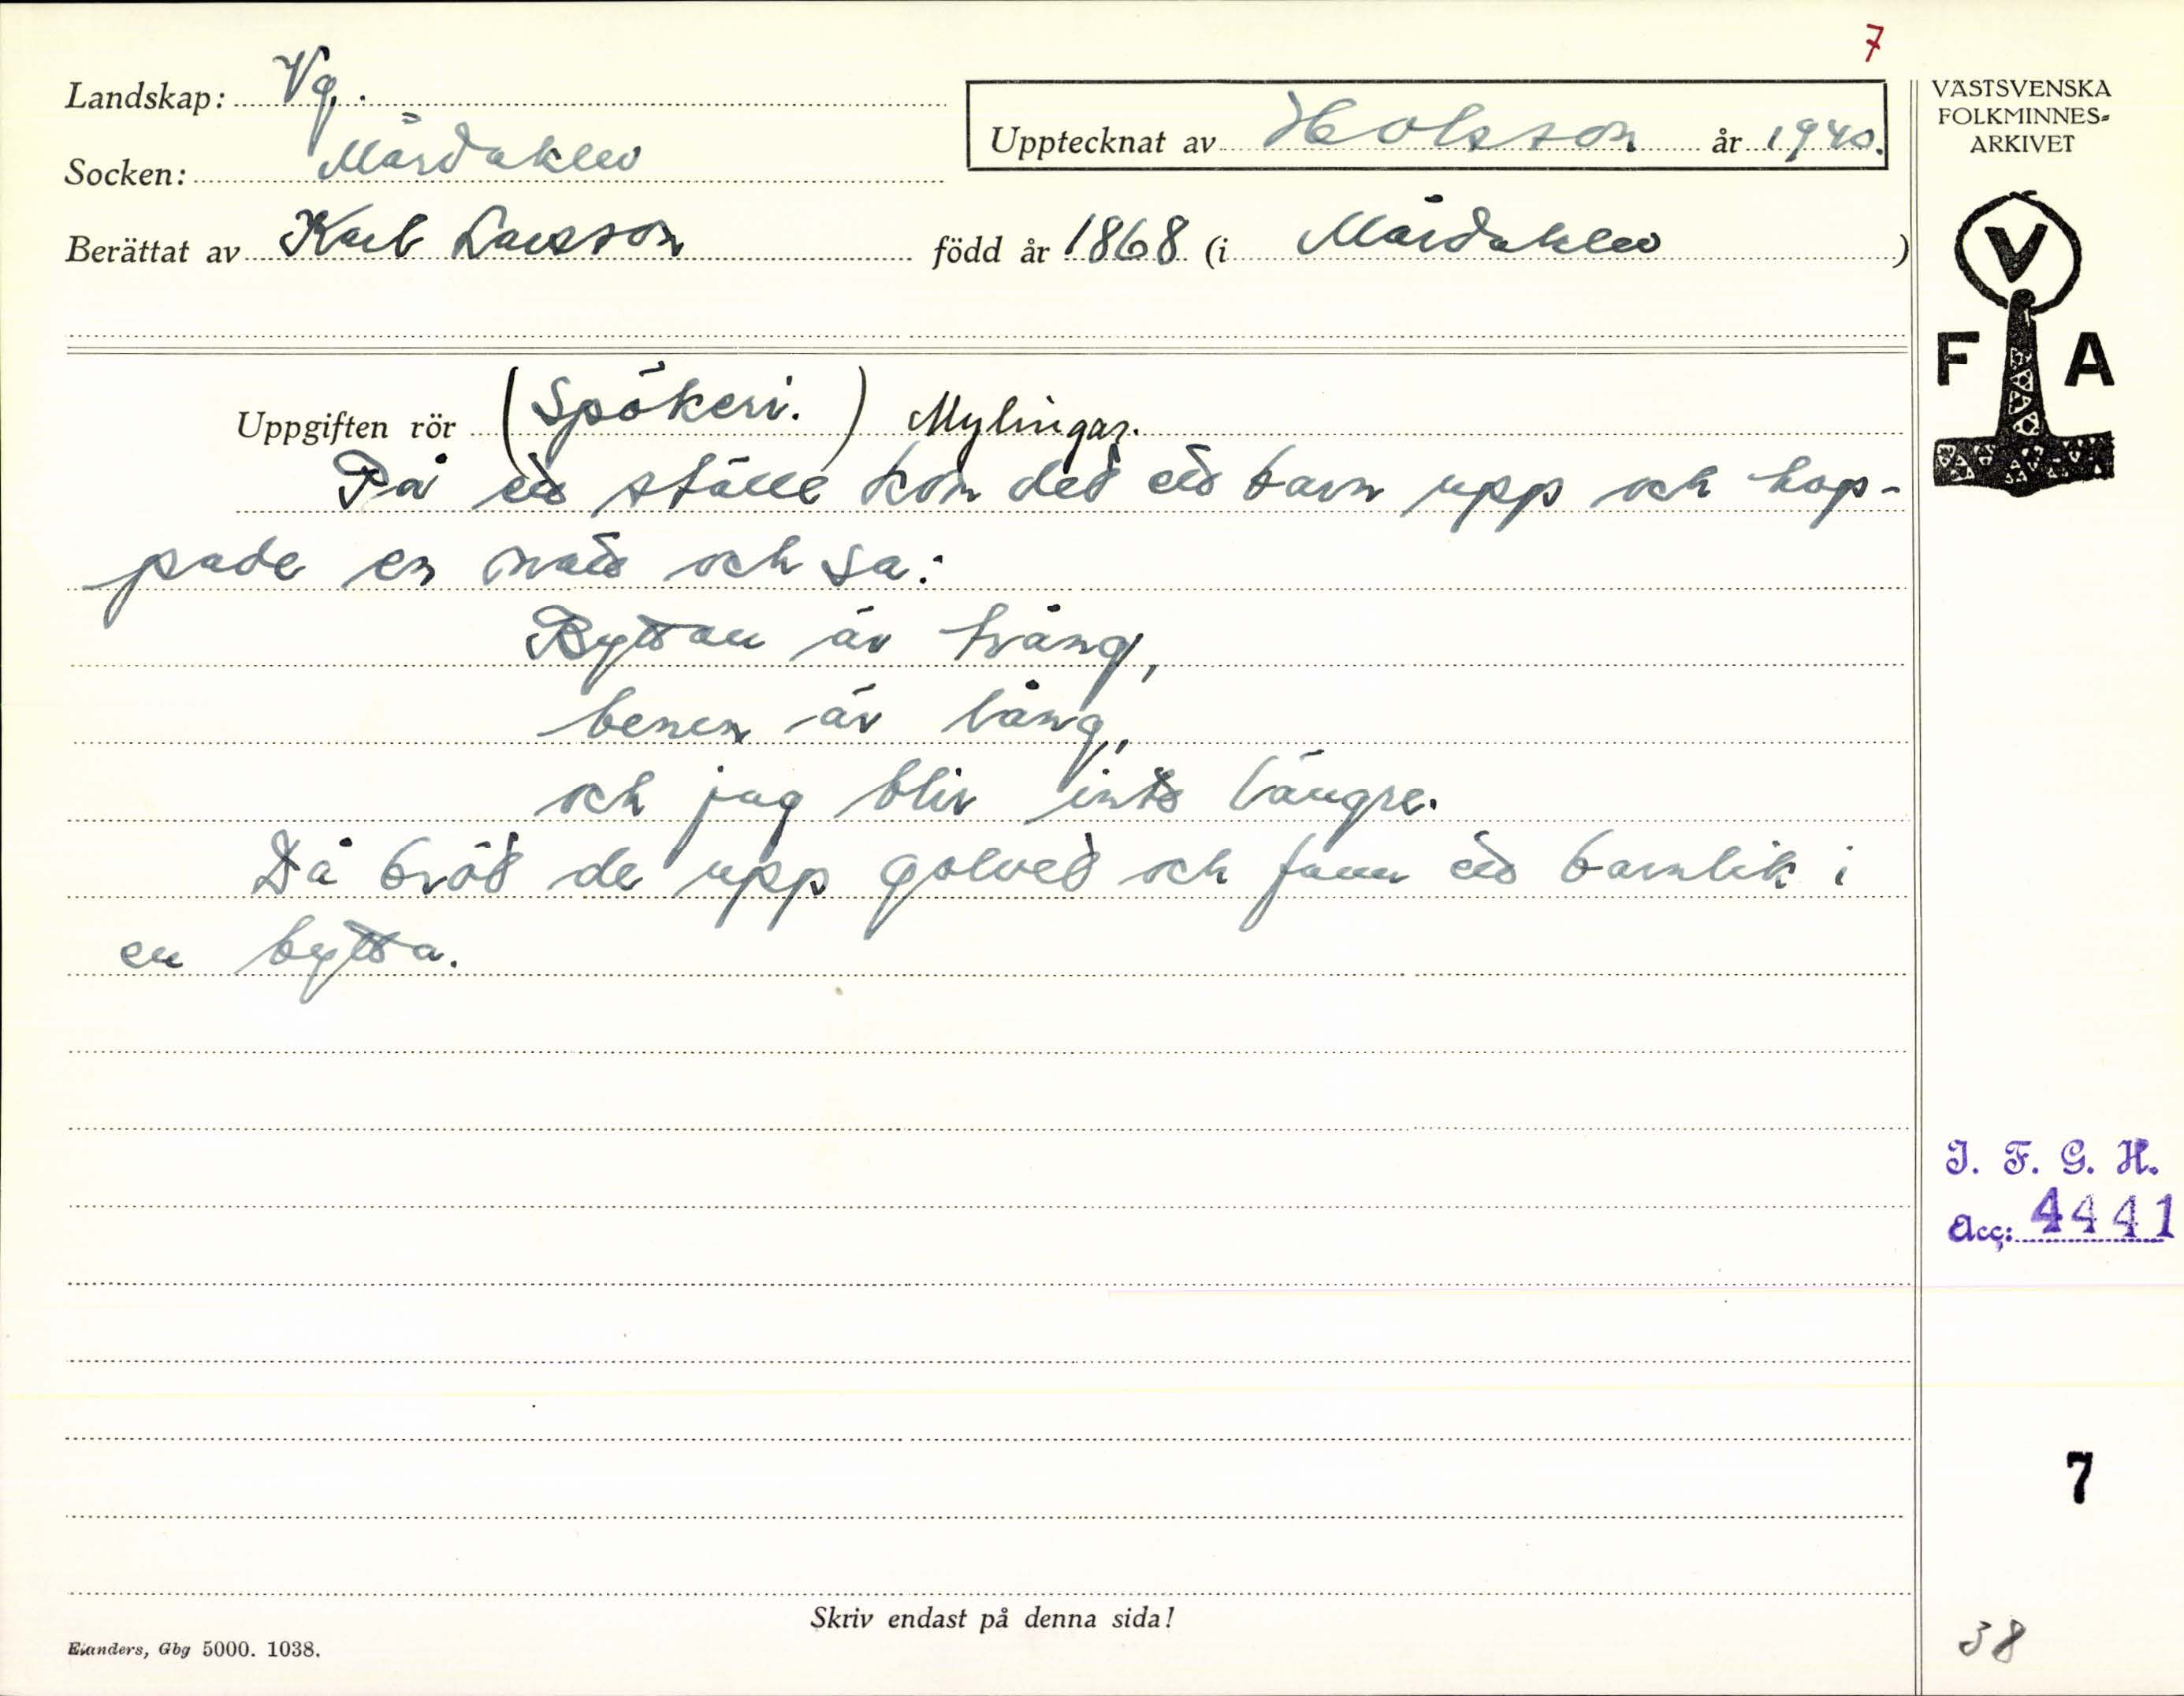 7
Landskap: Vg.
Socken: Mårdaklev
Upptecknat av Holsson år 1940.
Berättat av Karl Larsson född år 1868 (i Mårdaklev)
VÄSTSVENSKA
FOLKMINNES-
ARKIVET
V
F A
Uppgiften rör (Spökeri.) Mylingar.
På ett ställe kom det ett barn upp och hop-
pade en natt och sa:
Byttan är trång,
benen är lång,
och jag blir inte längre.
Då bröt de upp golvet och fann ett barnlik i
en bytta.
I. F. G. H.
Acc: 4441
7
Skriv endast på denna sida!
Elanders, Gbg 5000. 1038.
38